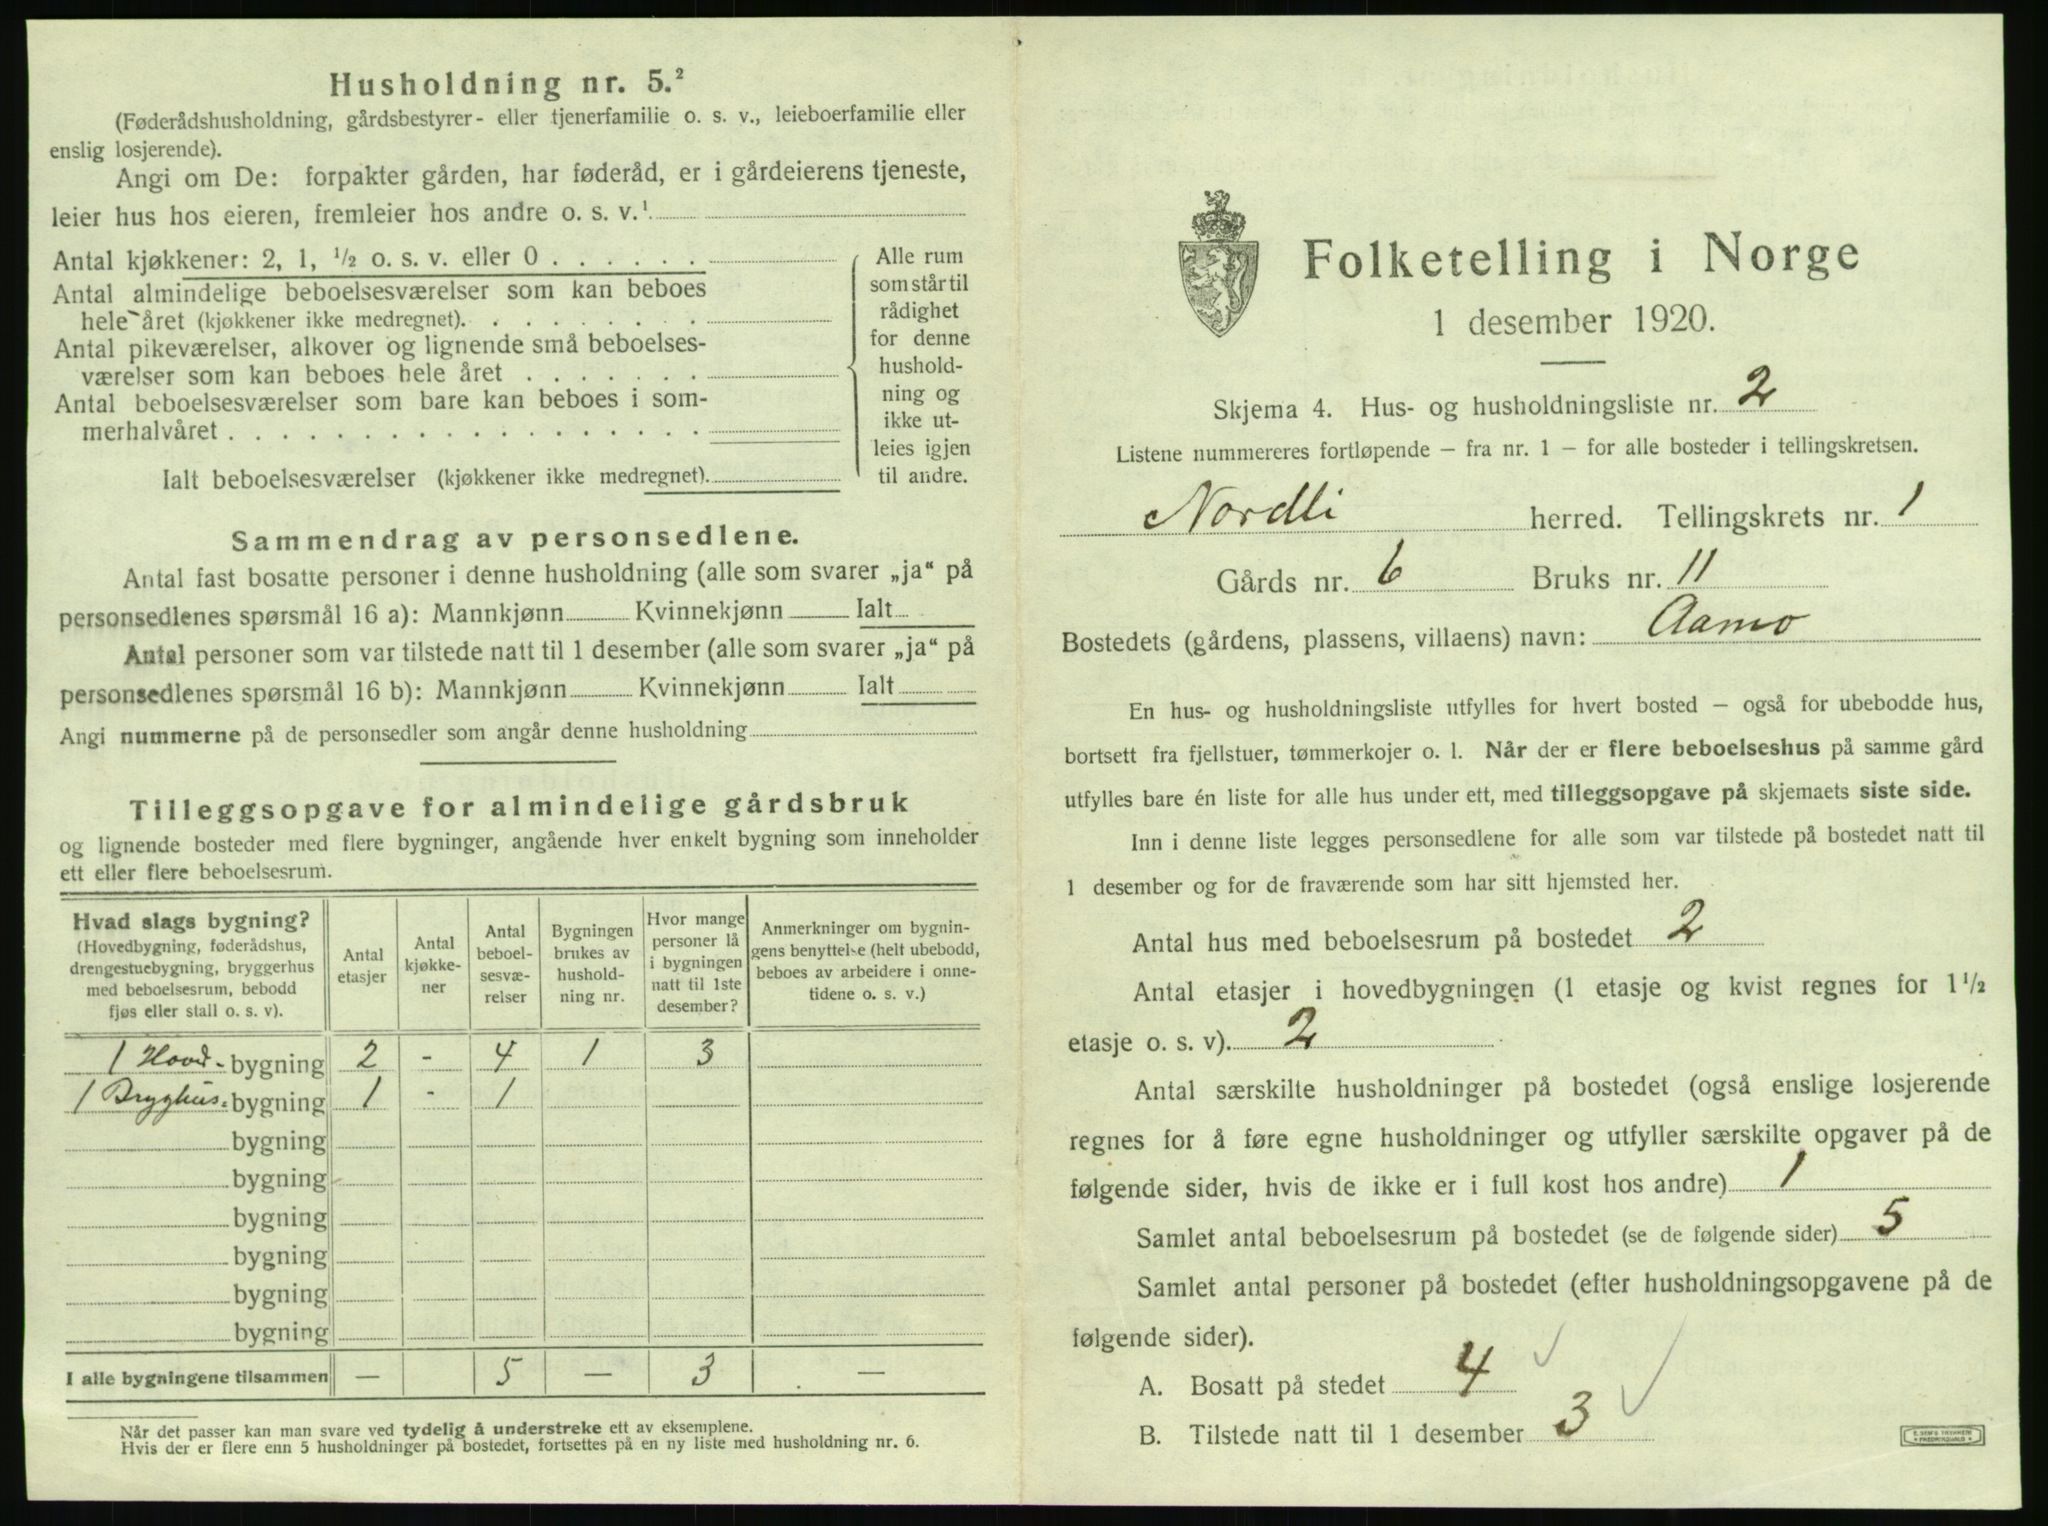 Husholdning nr. 5.²
(Føderådshusholdning, gårdsbestyrer- eller tjenerfamilie o. s. v., leieboerfamilie eller
enslig losjerende).
Angi om De: forpakter gården, har føderåd, er i gårdeierens tjeneste,
leier hus hos eieren, fremleier hos andre o. s. v.¹
Antal kjøkkener: 2, 1, ½ o. s. v. eller 0 . . . . . .
Antal almindelige beboelsesværelser som kan beboes
hele året (kjøkkener ikke medregnet). . . . . . . . .
Antal pikeværelser, alkover og lignende små beboelses-
værelser som kan beboes hele året . . . . . . .
Antal beboelsesværelser som bare kan beboes i som-
merhalvåret . . . . . . . . . . . . . . . . . .
Ialt beboelsesværelser (kjøkkener ikke medregnet).
Alle rum
som står til
rådighet
for denne
hushold-
ning og
ikke ut-
leies igjen
til andre.
Sammendrag av personsedlene.
Antal fast bosatte personer i denne husholdning (alle som svarer „ja“ på
personsedlenes spørsmål 16 a): Mannkjønn Kvinnekjønn Ialt
Antal personer som var tilstede natt til 1 desember (alle som svarer „ja“ på
personsedlenes spørsmål 16 b): Mannkjønn Kvinnekjønn Ialt
Angi nummerne på de personsedler som angår denne husholdning
Tilleggsopgave for almindelige gårdsbruk
og lignende bosteder med flere bygninger, angående hver enkelt bygning som inneholder
ett eller flere beboelsesrum.
Hvad slags bygning?
(Hovedbygning, føderådshus,
drengestuebygning, bryggerhus
med beboelsesrum, bebodd
fjøs eller stall o. s. v).
Antal
etasjer
Antal
kjøkke-
ner
Antal
beboel-
sesvæ-
relser
Bygningen
brukes av
hushold-
ning nr.
Hvor mange
personer lå
i bygningen
natt til 1ste
desember?
Anmerkninger om bygnin-
gens benyttelse (helt ubebodd,
beboes av arbeidere i onne-
tidene o. s. v.)
1 Hoved- bygning 2 - 4 1 3
1 Bryghus- bygning 1 - 1
bygning
bygning
bygning
bygning
bygning
bygning
I alle bygningene tilsammen — 5 — 3 —
Når det passer kan man svare ved tydelig å understreke ett av eksemplene.
Hvis der er flere enn 5 husholdninger på bostedet, fortsettes på en ny liste med husholdning nr. 6.
Folketelling i Norge
1 desember 1920.
Skjema 4. Hus- og husholdningsliste nr. 2
Listene nummereres fortløpende – fra nr. 1 – for alle bosteder i tellingskretsen.
Nordli herred. Tellingskrets nr. 1
Gårds nr. 6 Bruks nr. 11
Bostedets (gårdens, plassens, villaens) navn: Aamo
En hus- og husholdningsliste utfylles for hvert bosted – også for ubebodde hus,
bortsett fra fjellstuer, tømmerkojer o. l. Når der er flere beboelseshus på samme gård
utfylles bare én liste for alle hus under ett, med tilleggsopgave på skjemaets siste side.
Inn i denne liste legges personsedlene for alle som var tilstede på bostedet natt til
1 desember og for de fraværende som har sitt hjemsted her.
Antal hus med beboelsesrum på bostedet 2
Antal etasjer i hovedbygningen (1 etasje og kvist regnes for 1½
etasje o. s. v). 2
Antal særskilte husholdninger på bostedet (også enslige losjerende
regnes for å føre egne husholdninger og utfyller særskilte opgaver på de
følgende sider, hvis de ikke er i full kost hos andre) 1
Samlet antal beboelsesrum på bostedet (se de følgende sider) 5
Samlet antal personer på bostedet (efter husholdningsopgavene på de
følgende sider).
A. Bosatt på stedet 4 ✓
B. Tilstede natt til 1 desember 3 ✓